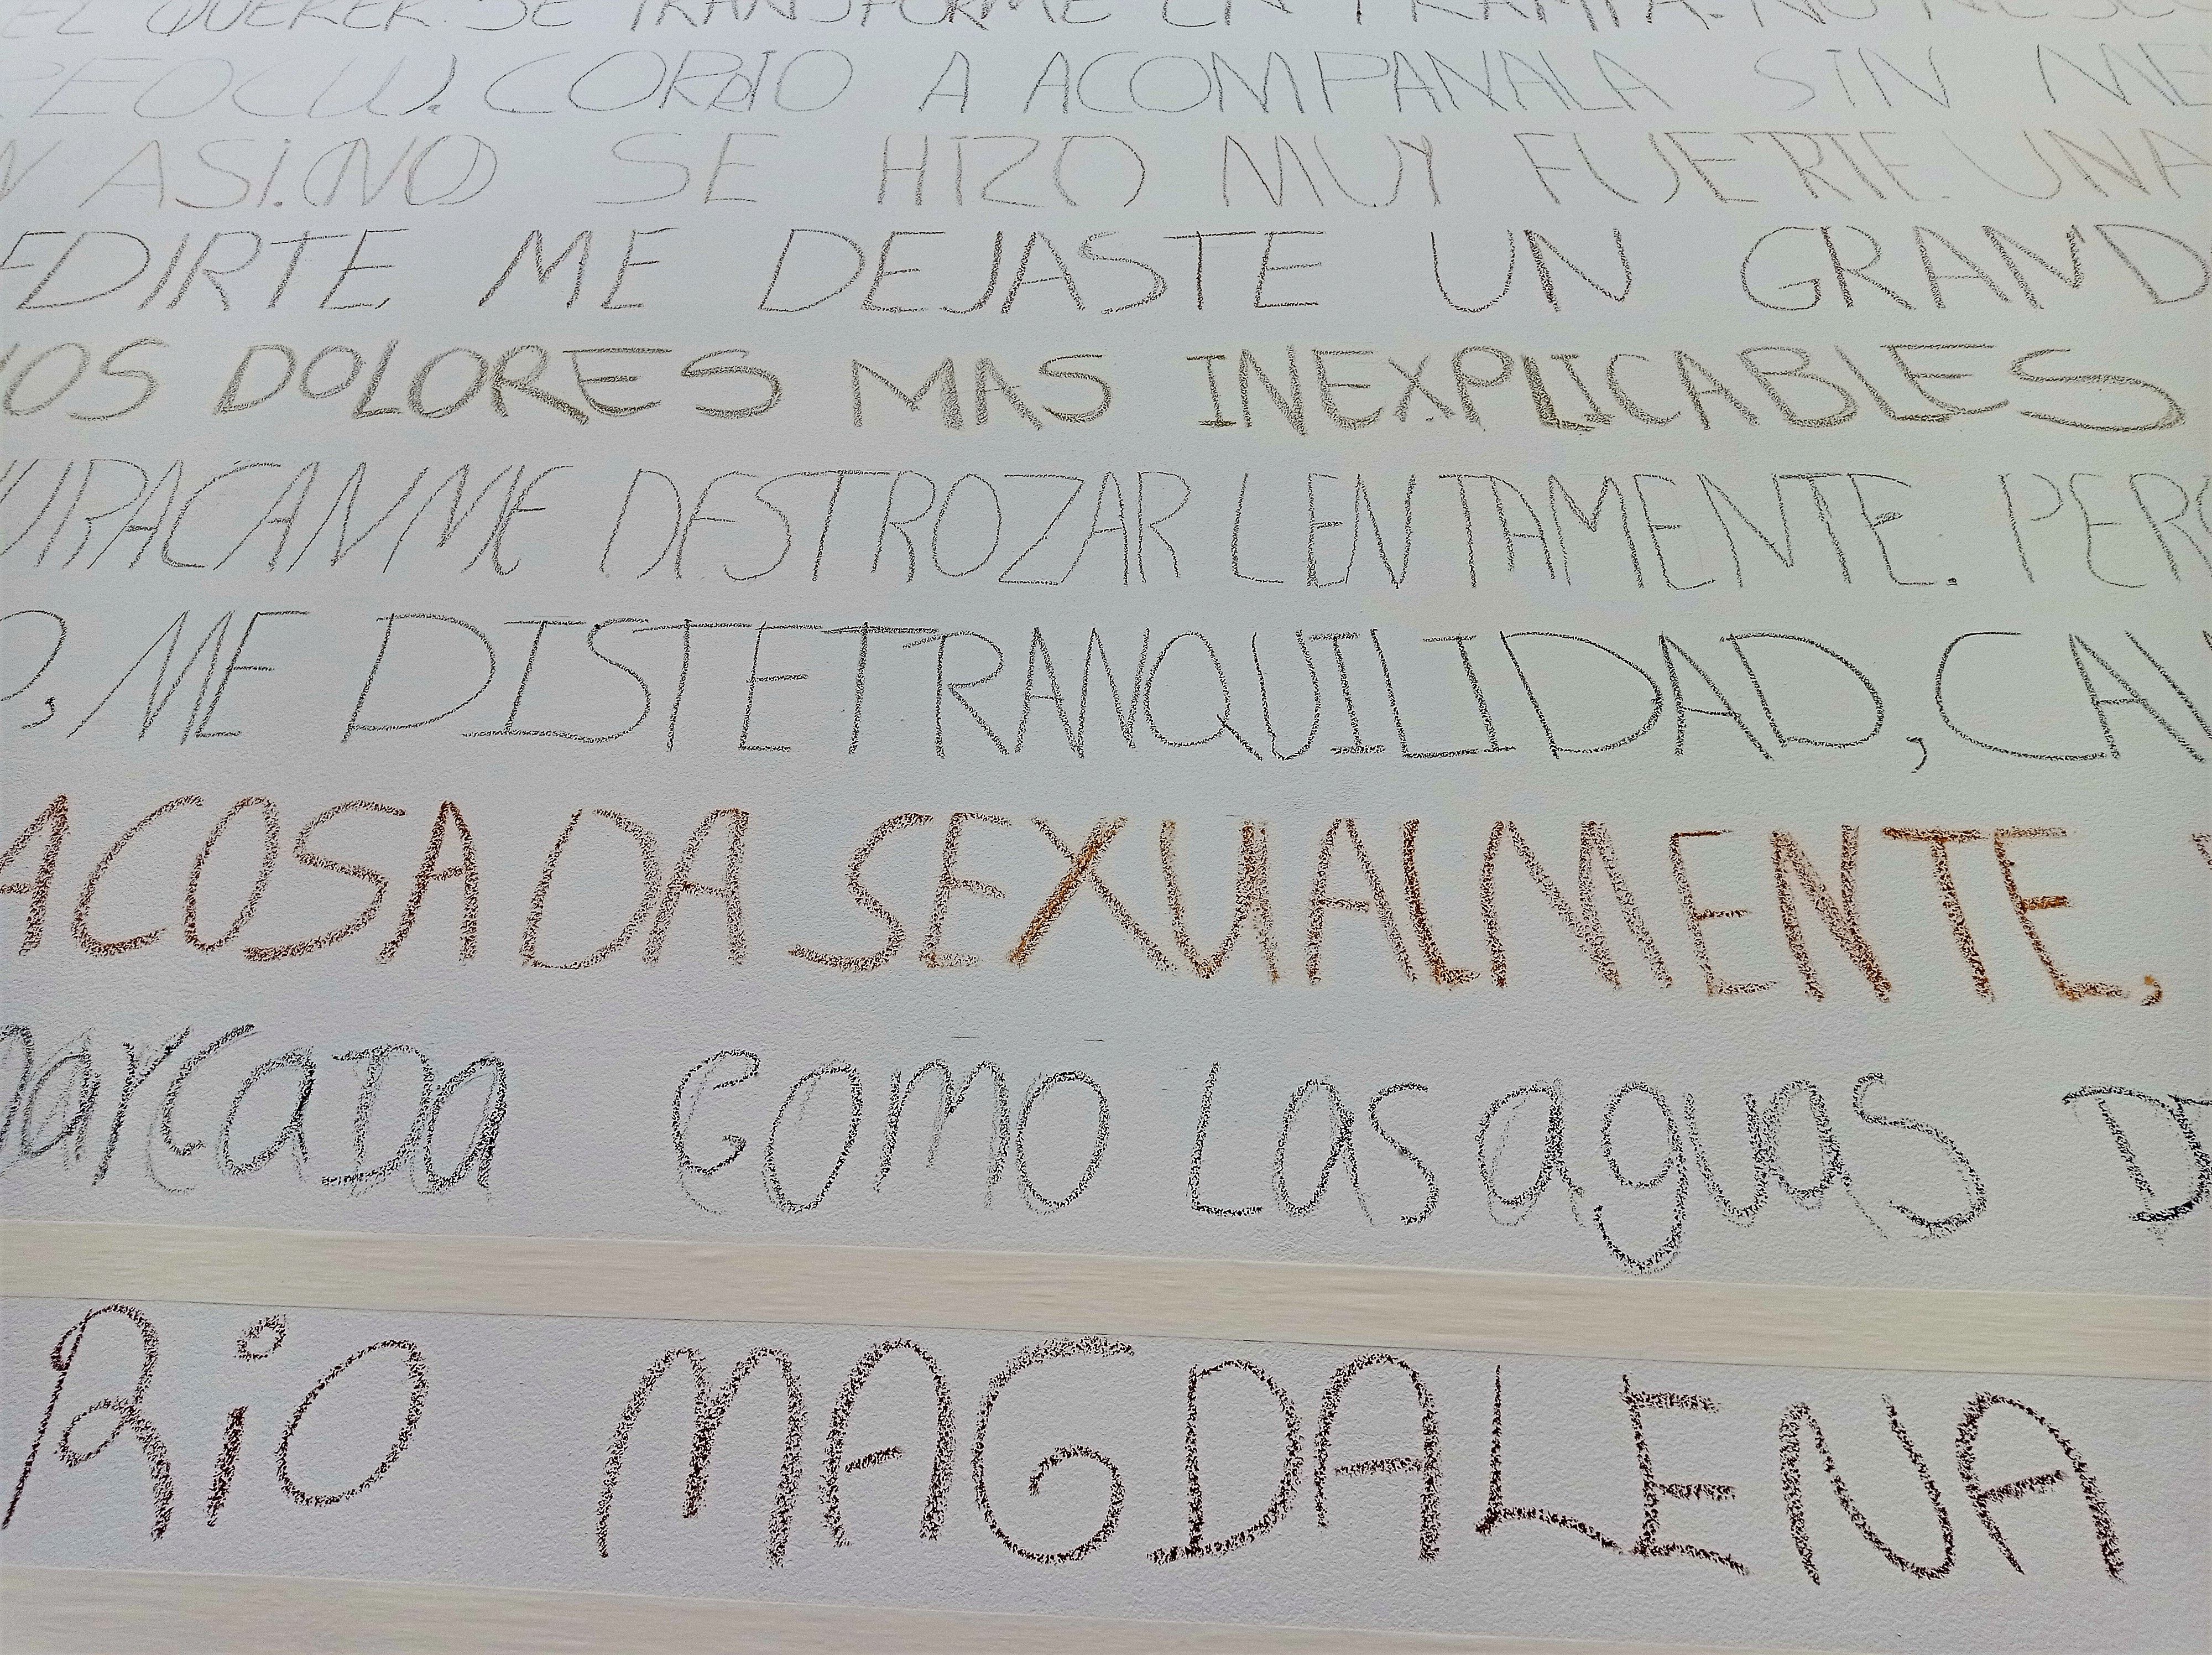 EL QUERER. SE TRANSFORME EN TRAMPA. NO
CORRIO A ACOMPANALA SIN ME
N ASI.(NO) SE HIZO MUY FUERTE. UNA
EDIRTE, ME DEJASTE UN GRAND
OS DOLORES MAS INEXPLICABLES
URACAN ME DESTROZAR LENTAMENTE. PERO
O, ME DISTE TRANQUILIDAD, CAL
ACOSADA SEXUALMENTE,
marcada como Las aguas D
Rio MAGDALENA